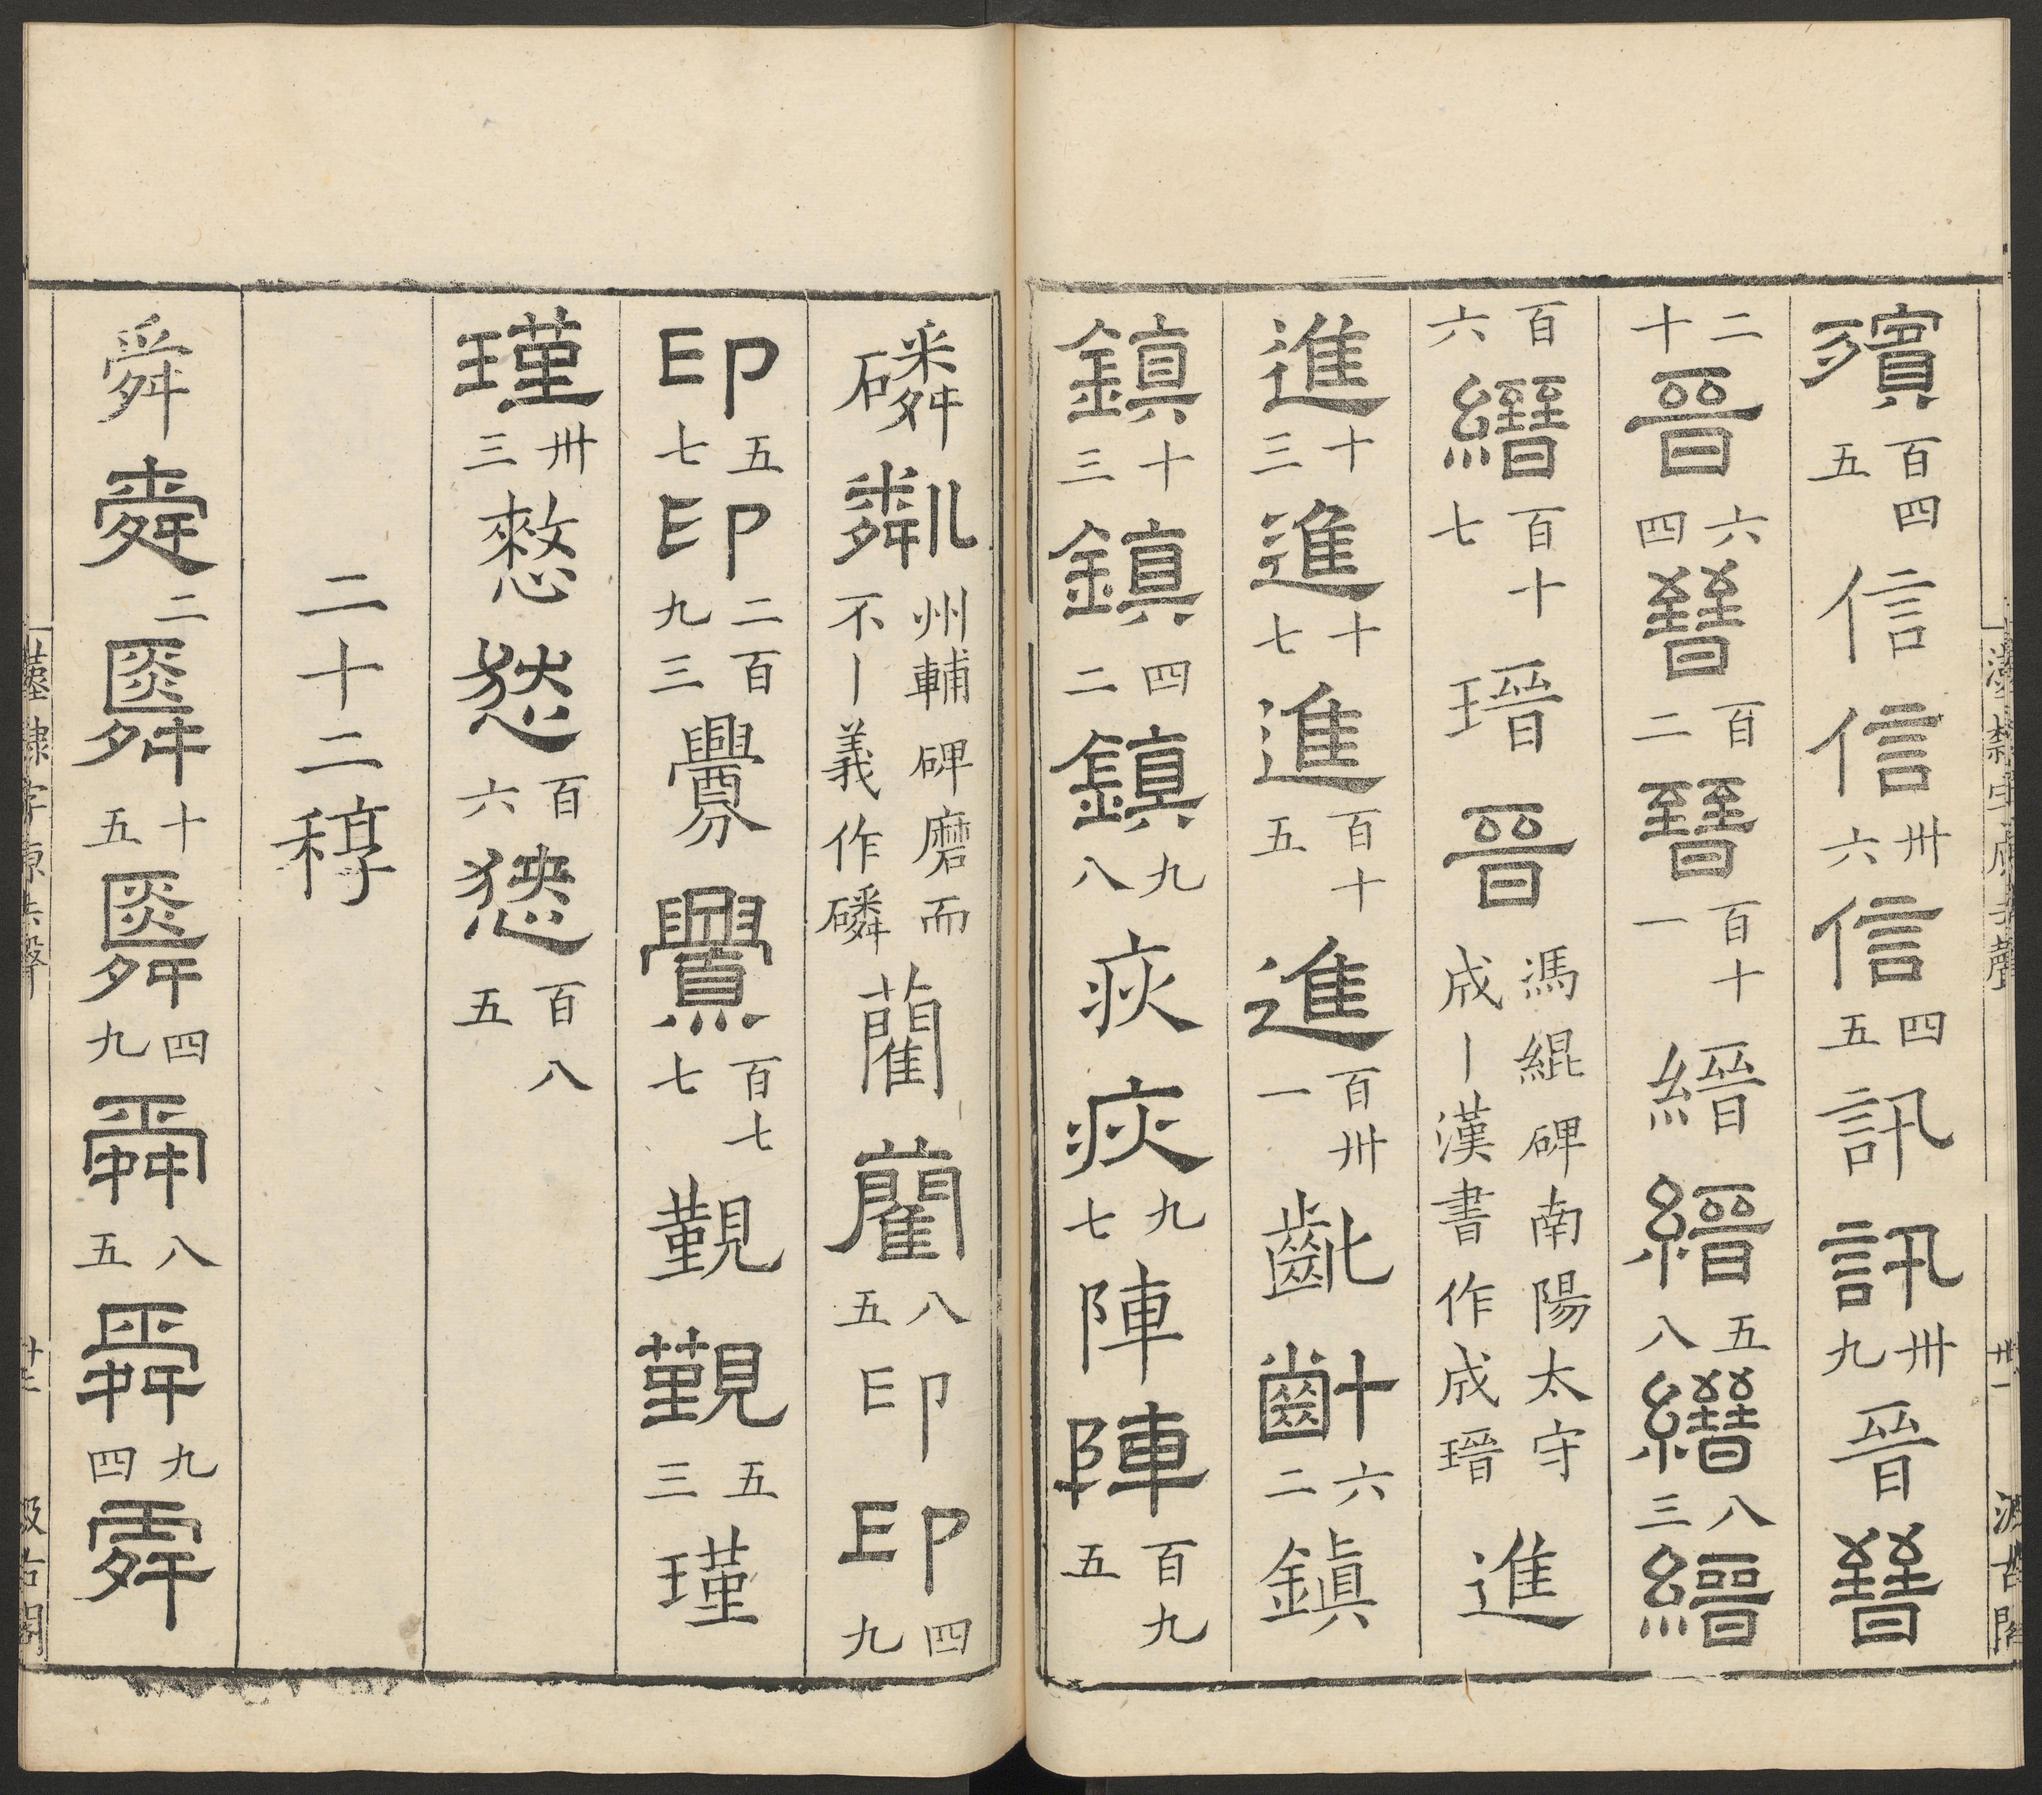 殯百四五信信卌六信四五訊訊卌九晉晉
二十晉六四晉百二晉百十一縉縉五八縉八三縉
百六縉百十七瑨晉馮緄碑南陽太守成丨漢書作成瑨進
進十三進十七進百十五進百卌一齔齔六二鎮
鎮十三鎮四二鎮九八疢疢九七陣陣百九五
磷粼州輔碑磨而不丨義作磷藺藺八五印印四九
印五七印二百九三釁釁百七七覲覲五三瑾
瑾卌三憖憖百六憖百八五
二十二稕
舜舜二舜十五舜四九舜八五舜九四舜
汲古閣